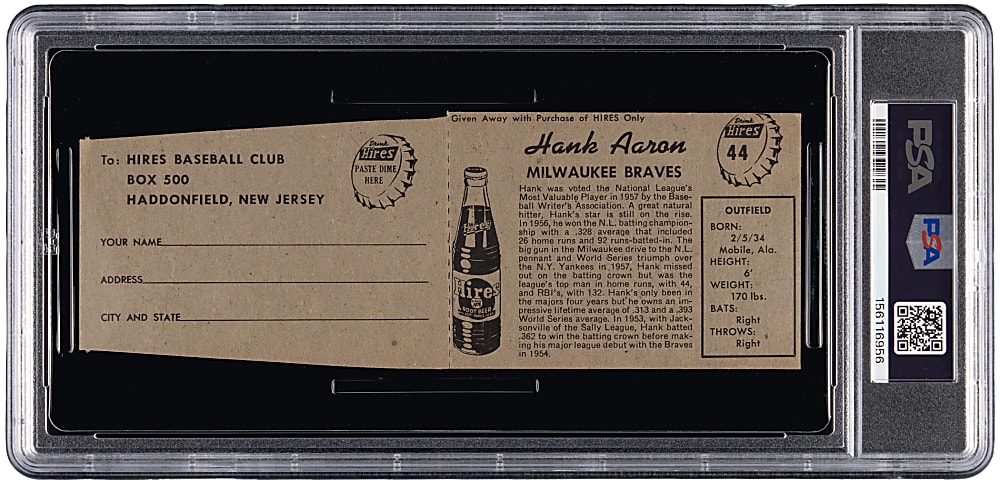 To: HIRES BASEBALL CLUB
BOX 500
HADDONFIELD, NEW JERSEY
Drink
Hires
PASTE DIME
HERE
YOUR NAME
ADDRESS
CITY AND STATE
Given Away with Purchase of HIRES Only
Hank Aaron
MILWAUKEE BRAVES
Hank was voted the National League's
Most Valuable Player in 1957 by the Base-
ball Writer's Association. A great natural
hitter, Hank's star is still on the rise.
In 1956, he won the N.L. batting champion-
ship with a .328 average that included
26 home runs and 92 runs-batted-in. The
big gun in the Milwaukee drive to the N.L.
pennant and World Series triumph over
the N.Y. Yankees in 1957, Hank missed
out on the batting crown but was the
league's top man in home runs, with 44,
and RBI's, with 132. Hank's only been in
the majors four years but he owns an im-
pressive lifetime average of .313 and a .393
World Series average. In 1953, with Jack-
sonville of the Sally League, Hank batted
.362 to win the batting crown before mak-
ing his major league debut with the Braves
in 1954.
Hires
Hires
ROOT BEER
Drink
Hires
44
OUTFIELD
BORN:
2/5/34
Mobile, Ala.
HEIGHT:
6'
WEIGHT:
170 lbs.
BATS:
Right
THROWS:
Right
PSA
PSA
156116956